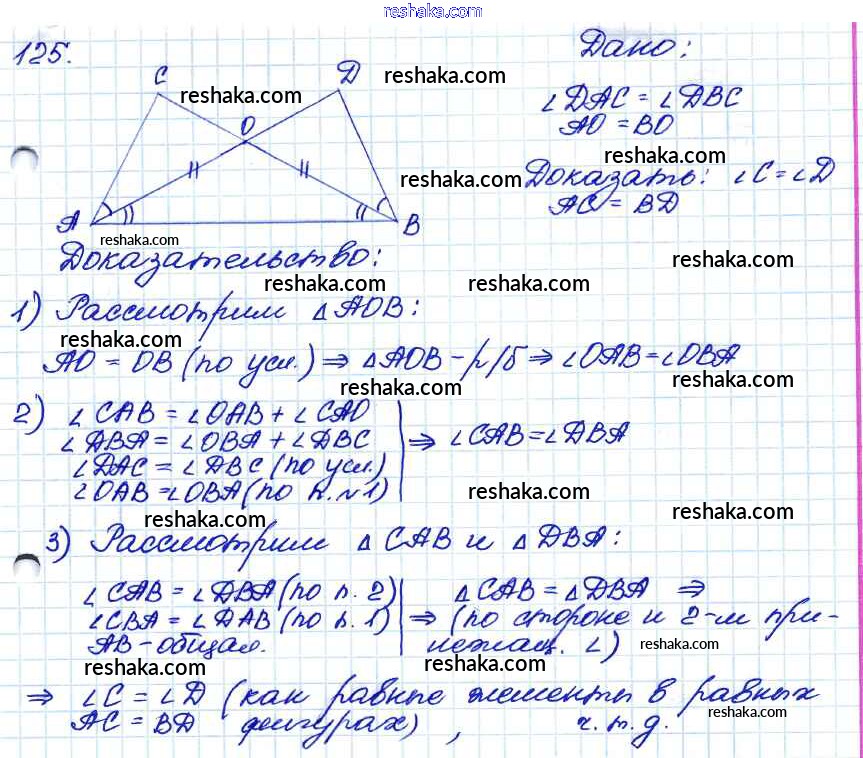 reshaka.com
125.
Дано:
C
D
reshaka.com
reshaka.com
∠DAC = ∠DBC
AO = BO
O
reshaka.com
Доказать: ∠C = ∠D
AC = BD
reshaka.com
A
B
reshaka.com
Доказательство:
reshaka.com
reshaka.com
reshaka.com
1) Рассмотрим △AOB:
reshaka.com
AO = OB (по усл.) ⇒ △AOB – р/б ⇒ ∠OAB = ∠OBA
reshaka.com
reshaka.com
2) ∠CAB = ∠OAB + ∠CAO
∠DBA = ∠OBA + ∠DBC
∠DAC = ∠DBC (по усл.)
∠OAB = ∠OBA (по п. №1)
⇒ ∠CAB = ∠DBA
reshaka.com
reshaka.com
reshaka.com
3) Рассмотрим △CAB и △DBA:
∠CAB = ∠DBA (по п. 2)
∠CBA = ∠DAB (по п. 1)
AB – общая.
△CAB = △DBA ⇒
⇒ (по стороне и 2-м при-
лежащ. ∠)
reshaka.com
reshaka.com
reshaka.com
⇒ ∠C = ∠D (как равные элементы в равных
AC = BD фигурах), ч.т.д.
reshaka.com